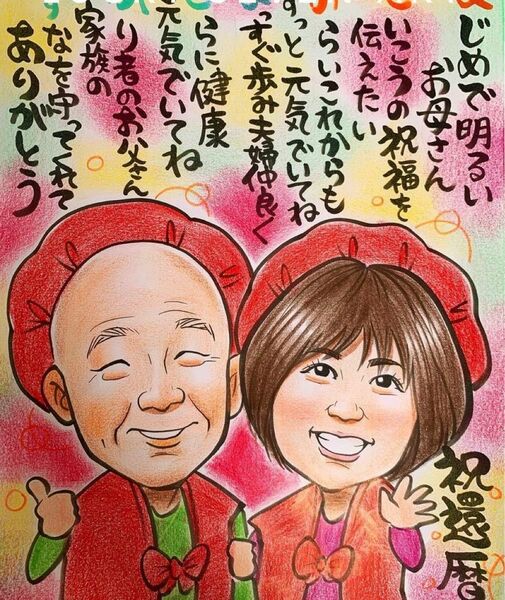 じめで明るい
お母さん
いこうの祝福を
伝えたい
らいこれからも
ずっと元気でいてね
っすぐ歩み夫婦仲良く
らに健康
元気でいてね
り者のお父さん
家族の
ずなを守ってくれて
ありがとう
祝還暦